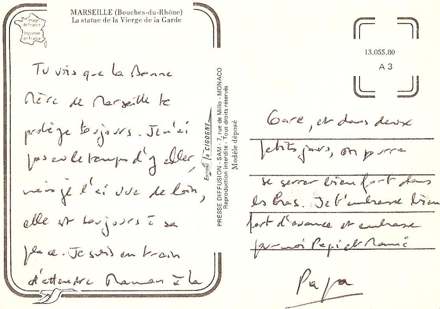 MARSEILLE (Bouches-du-Rhône)
La statue de la Vierge de la Garde
Tu vois que la Bonne
Mère de Marseille te
protège toujours. Je n'ai
pas eu le temps d'y aller,
mais je l'ai vue de loin,
elle est toujours à sa
place. Je suis en train
d'attendre Maman à la
PRESSE DIFFUSION - SAM - 7, rue de Millo - MONACO
Reproduction interdite - Tous droits réservés
Modèle déposé
13.055.80
A 3
Gare, et dans deux
petits jours, on pourra
se serrer bien fort dans
les bras. Je t'embrasse bien
fort d'avance et embrasse
pour moi Papi et Mamie
Papa